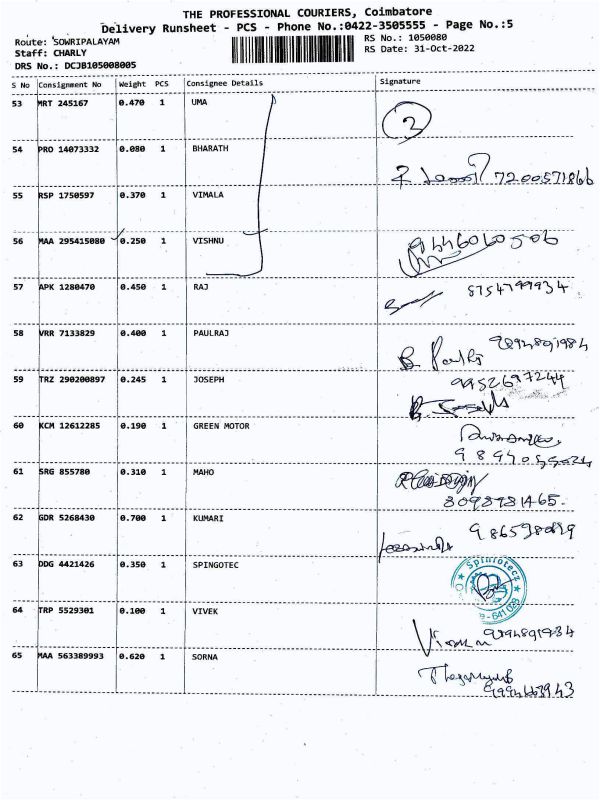 THE PROFESSIONAL COURIERS, Coimbatore
Delivery Runsheet - PCS - Phone No.:0422-3505555 - Page No.:5
Route: SOWRIPALAYAM
RS No.: 1050080
Staff: CHARLY
RS Date: 31-Oct-2022
DRS No.: DCJB105008005
S No Consignment No Weight PCS Consignee Details Signature
53 MRT 245167 0.470 1 UMA 2
54 PRO 14073332 0.080 1 BHARATH
7200571866
55 RSP 1750597 0.370 1 VIMALA
56 MAA 295415080 0.250 1 VISHNU 9446060506
57 APK 1280470 0.450 1 RAJ 8754799934
58 VRR 7133829 0.400 1 PAULRAJ
59 TRZ 290200897 0.245 1 JOSEPH 9952697244
60 KCM 12612285 0.190 1 GREEN MOTOR
61 SRG 855780 0.310 1 MAHO
8098981465.
62 GDR 5268430 0.700 1 KUMARI
63 DDG 4421426 0.350 1 SPINGOTEC Spinfotecz
641 028
64 TRP 5529301 0.100 1 VIVEK
65 MAA 563389993 0.620 1 SORNA